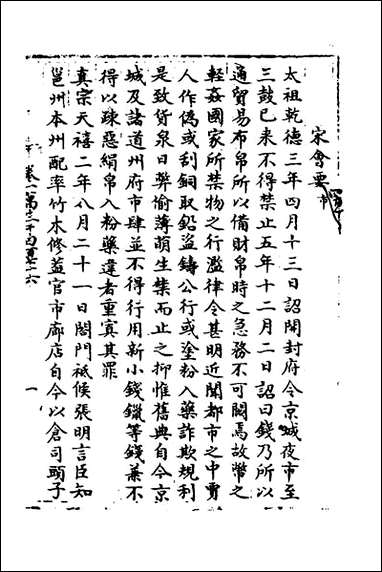 宋會要 市
太祖乾德三年四月十三日詔開封府令京城夜市至
三鼓已來不得禁止五年十二月二日詔曰錢乃所以
通貿易布帛所以備財帛時之急務不可闕焉故幣之
輕姦國家所禁物之行濫律令甚明近聞都市之中賈
人作偽或刮銅取鉛盜鑄公行或塗粉入藥詐欺規利
是致貨泉日弊偷薄萌生禁而止之抑惟舊典自今京
城及諸道州府市肆並不得行用新小錢鑞等錢兼不
得以疎惡絹帛入粉藥違者重寘其罪
真宗天禧二年八月二十一日閤門祗候張明言臣知
邕州本州配率竹木修蓋官市廊店自今以倉司頭子
卷一萬三千四百二十六
一